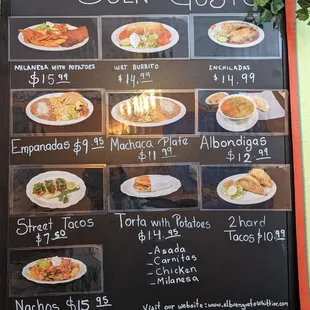 Buen Gusto
Milanesa with Potatoes
$15.99
Wet Burrito
$14.99
Enchiladas
$14.99
Empanadas $9.95
Machaca Plate
$11.99
Albondigas
$12.99
Street Tacos
$7.50
Torta with Potatoes
$14.95
- Asada
- Carnitas
- Chicken
- Milanesa
2 hard
Tacos $10.99
Nachos $15.95
Visit our website: www.elbuengustowhittier.com